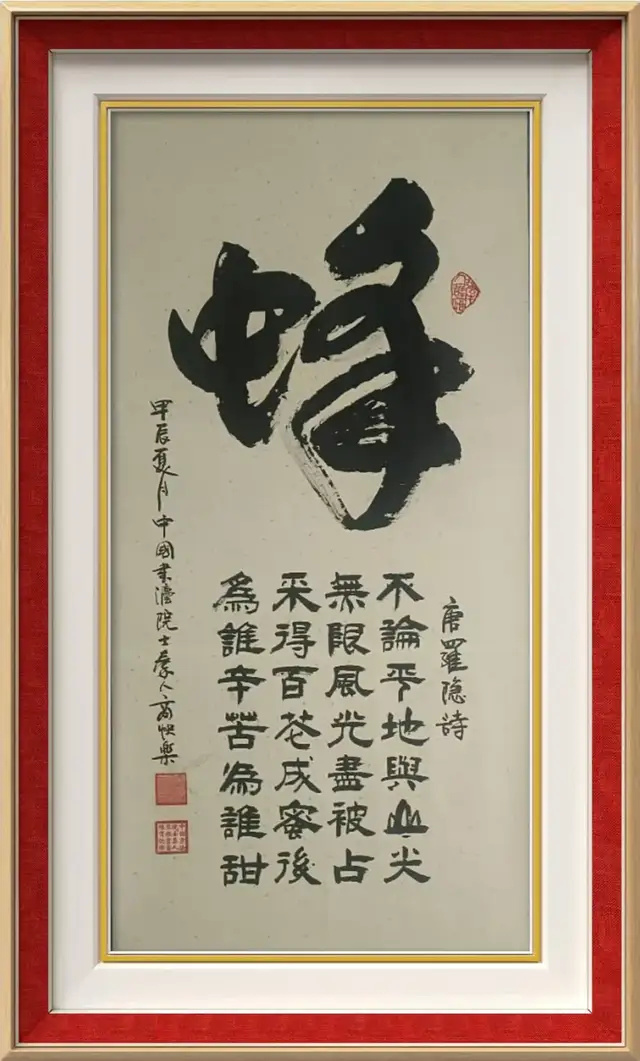 蜂
唐羅隐詩
不論平地與山尖
無限風光盡被占
采得百花成蜜後
為誰辛苦為誰甜
甲辰夏月中國書法院士
商快樂